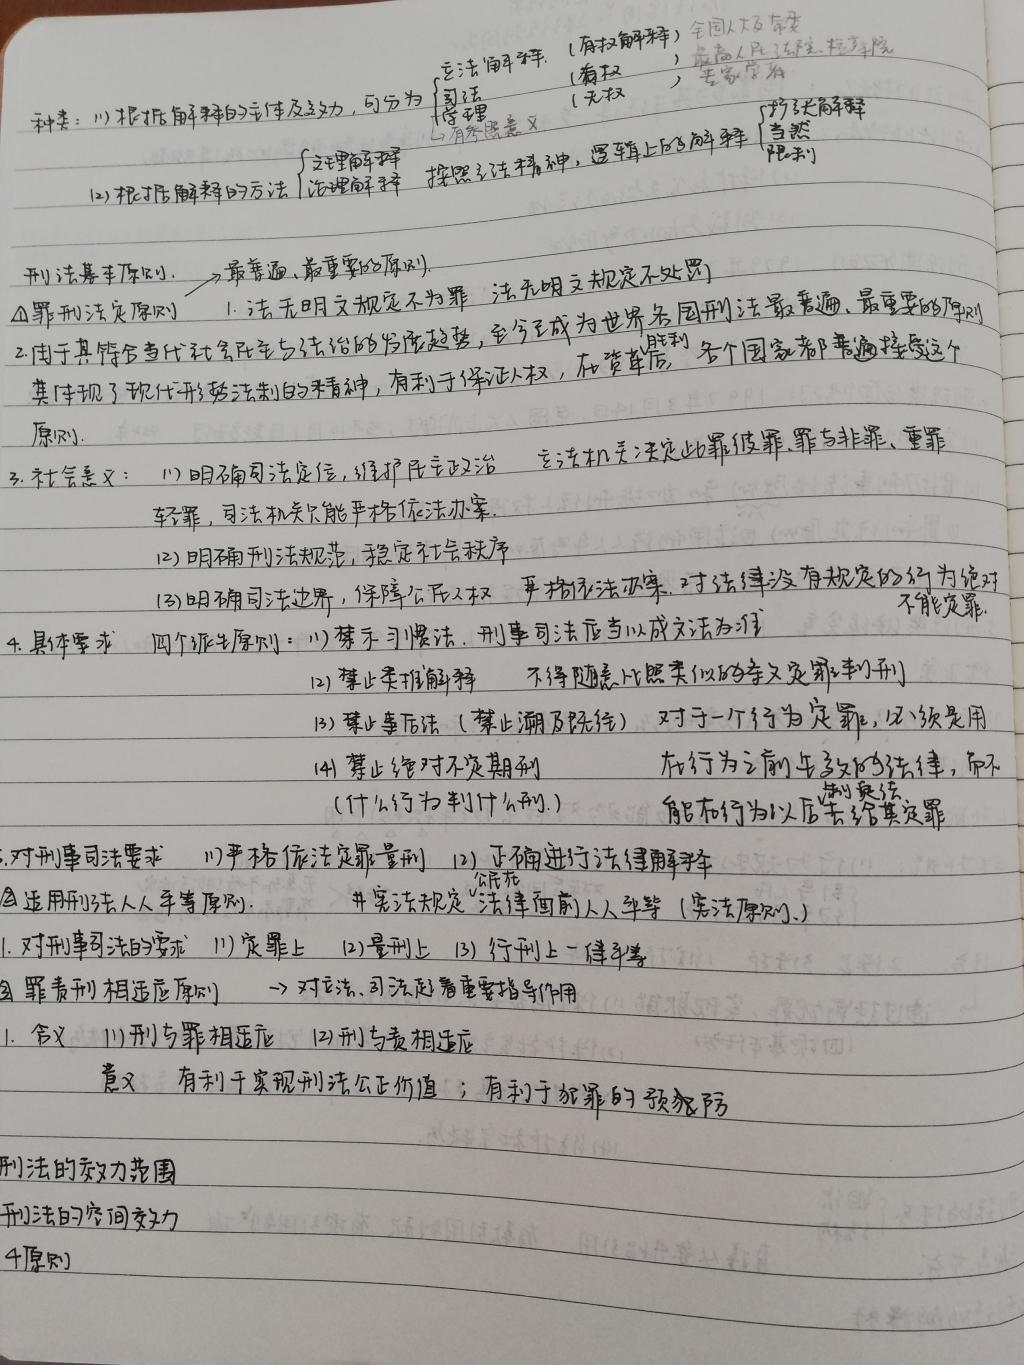 种类：(1) 根据解释的主体及效力，可分为 { 立法解释 (有权解释) 全国人大及常委
司法 (有权) 最高人民法院、检察院
学理 (无权) 专家学者
↳有参照意义
(2) 根据解释的方法 { 文理解释
论理解释 按照立法精神，逻辑上的解释 { 扩张解释
当然
限制
刑法基本原则. →最普遍、最重要的原则.
①罪刑法定原则 1. 法无明文规定不为罪 法无明文规定不处罚
2. 由于其符合当代社会民主与法治的发展趋势，至今已成为世界各国刑法最普遍、最重要的原则
其体现了现代形势法制的精神，有利于保证人权，在资革胜利后，各个国家都普遍接受这个
原则.
3. 社会意义： (1) 明确司法定位，维护民主政治 立法机关决定此罪彼罪、罪与非罪、重罪
轻罪，司法机关只能严格依法办案.
(2) 明确刑法规范，稳定社会秩序
(3) 明确司法边界，保障公民人权 严格依法办案. 对法律没有规定的行为绝对
不能定罪.
4. 具体要求 四个派生原则：(1) 禁示习惯法. 刑事司法应当以成文法为准
(2) 禁止类推解释 不得随意比照类似的条文定罪判刑
(3) 禁止事后法 (禁止溯及既往) 对于一个行为定罪，必须是用
(4) 禁止绝对不定期刑 在行为之前生效的法律，而不
(什么行为判什么刑.) 能在行为以后制定法去给其定罪
5. 对刑事司法要求 (1) 严格依法定罪量刑 (2) 正确进行法律解释
②适用刑法人人平等原则. 宪法规定公民在法律面前人人平等 (宪法原则.)
1. 对刑事司法的要求 (1) 定罪上 (2) 量刑上 (3) 行刑上一律平等
③罪责刑相适应原则 → 对立法、司法起着重要指导作用
1. 含义 (1) 刑与罪相适应 (2) 刑与责相适应
意义 有利于实现刑法公正价值；有利于犯罪的预防
刑法的效力范围
刑法的空间效力
4原则